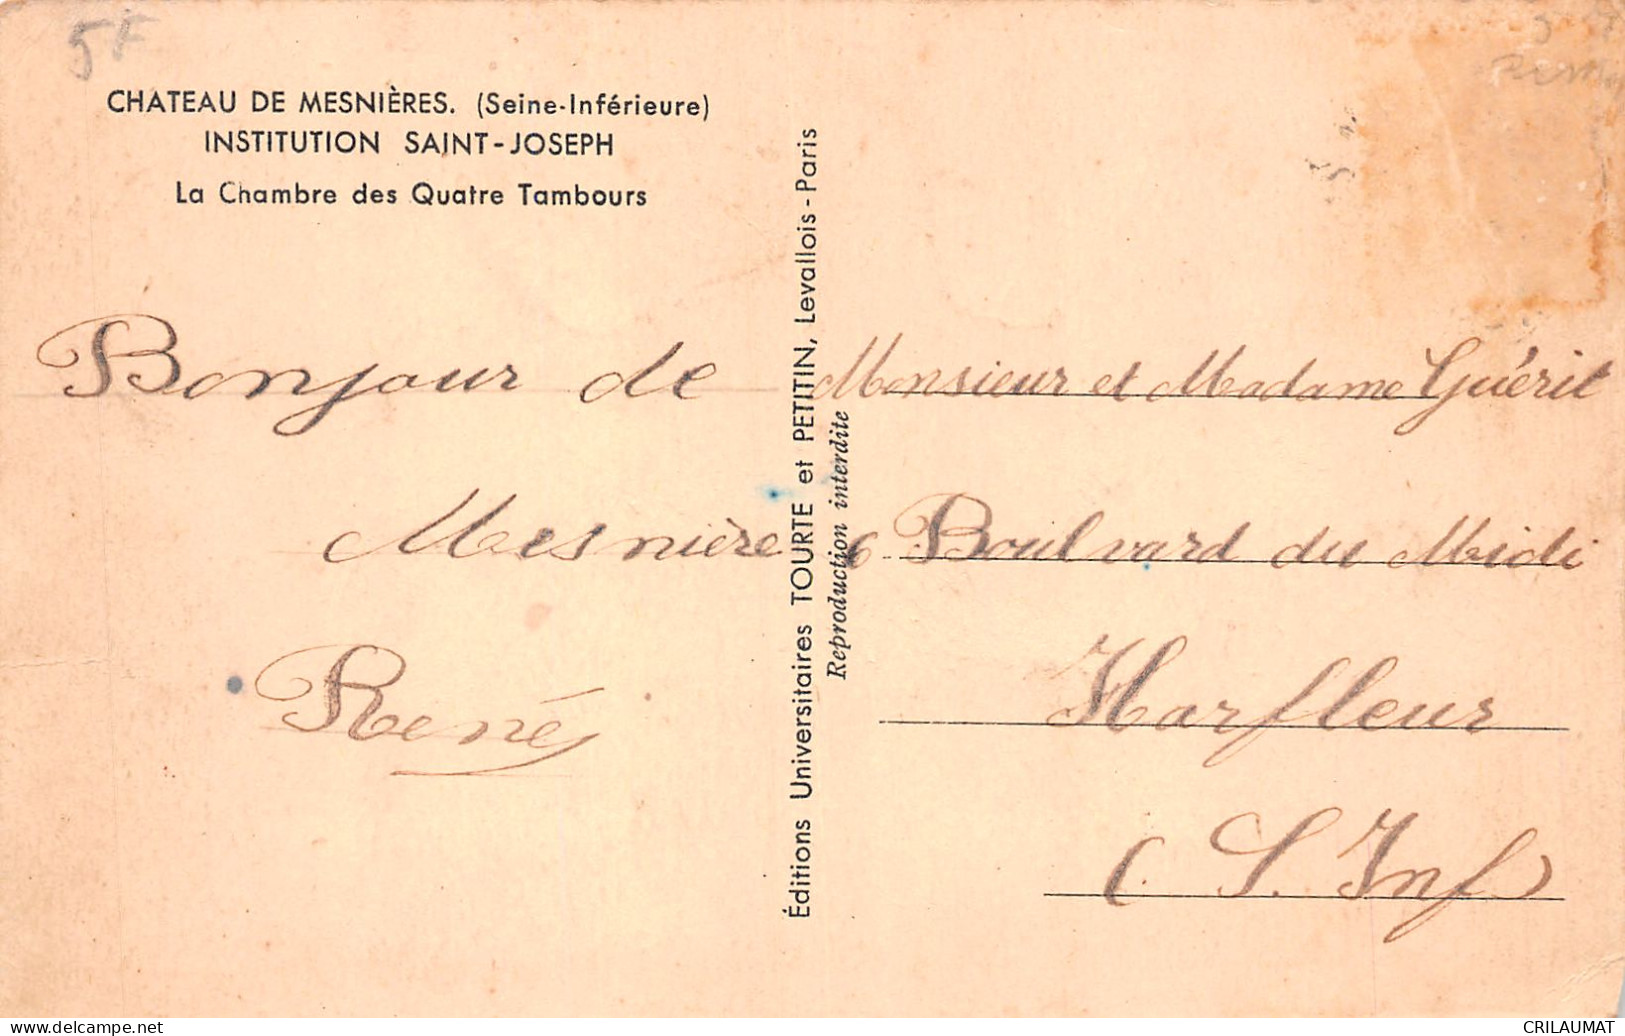 5F
CHATEAU DE MESNIÈRES. (Seine-Inférieure)
INSTITUTION SAINT-JOSEPH
La Chambre des Quatre Tambours
Bonjour de
Mesnière
René
Éditions Universitaires TOURTE et PETITIN, Levallois-Paris
Reproduction interdite
Monsieur et Madame Guérit
6 Boulvard du Midi
Harfleur
(S. Inf)
www.delcampe.net
CRILAUMAT